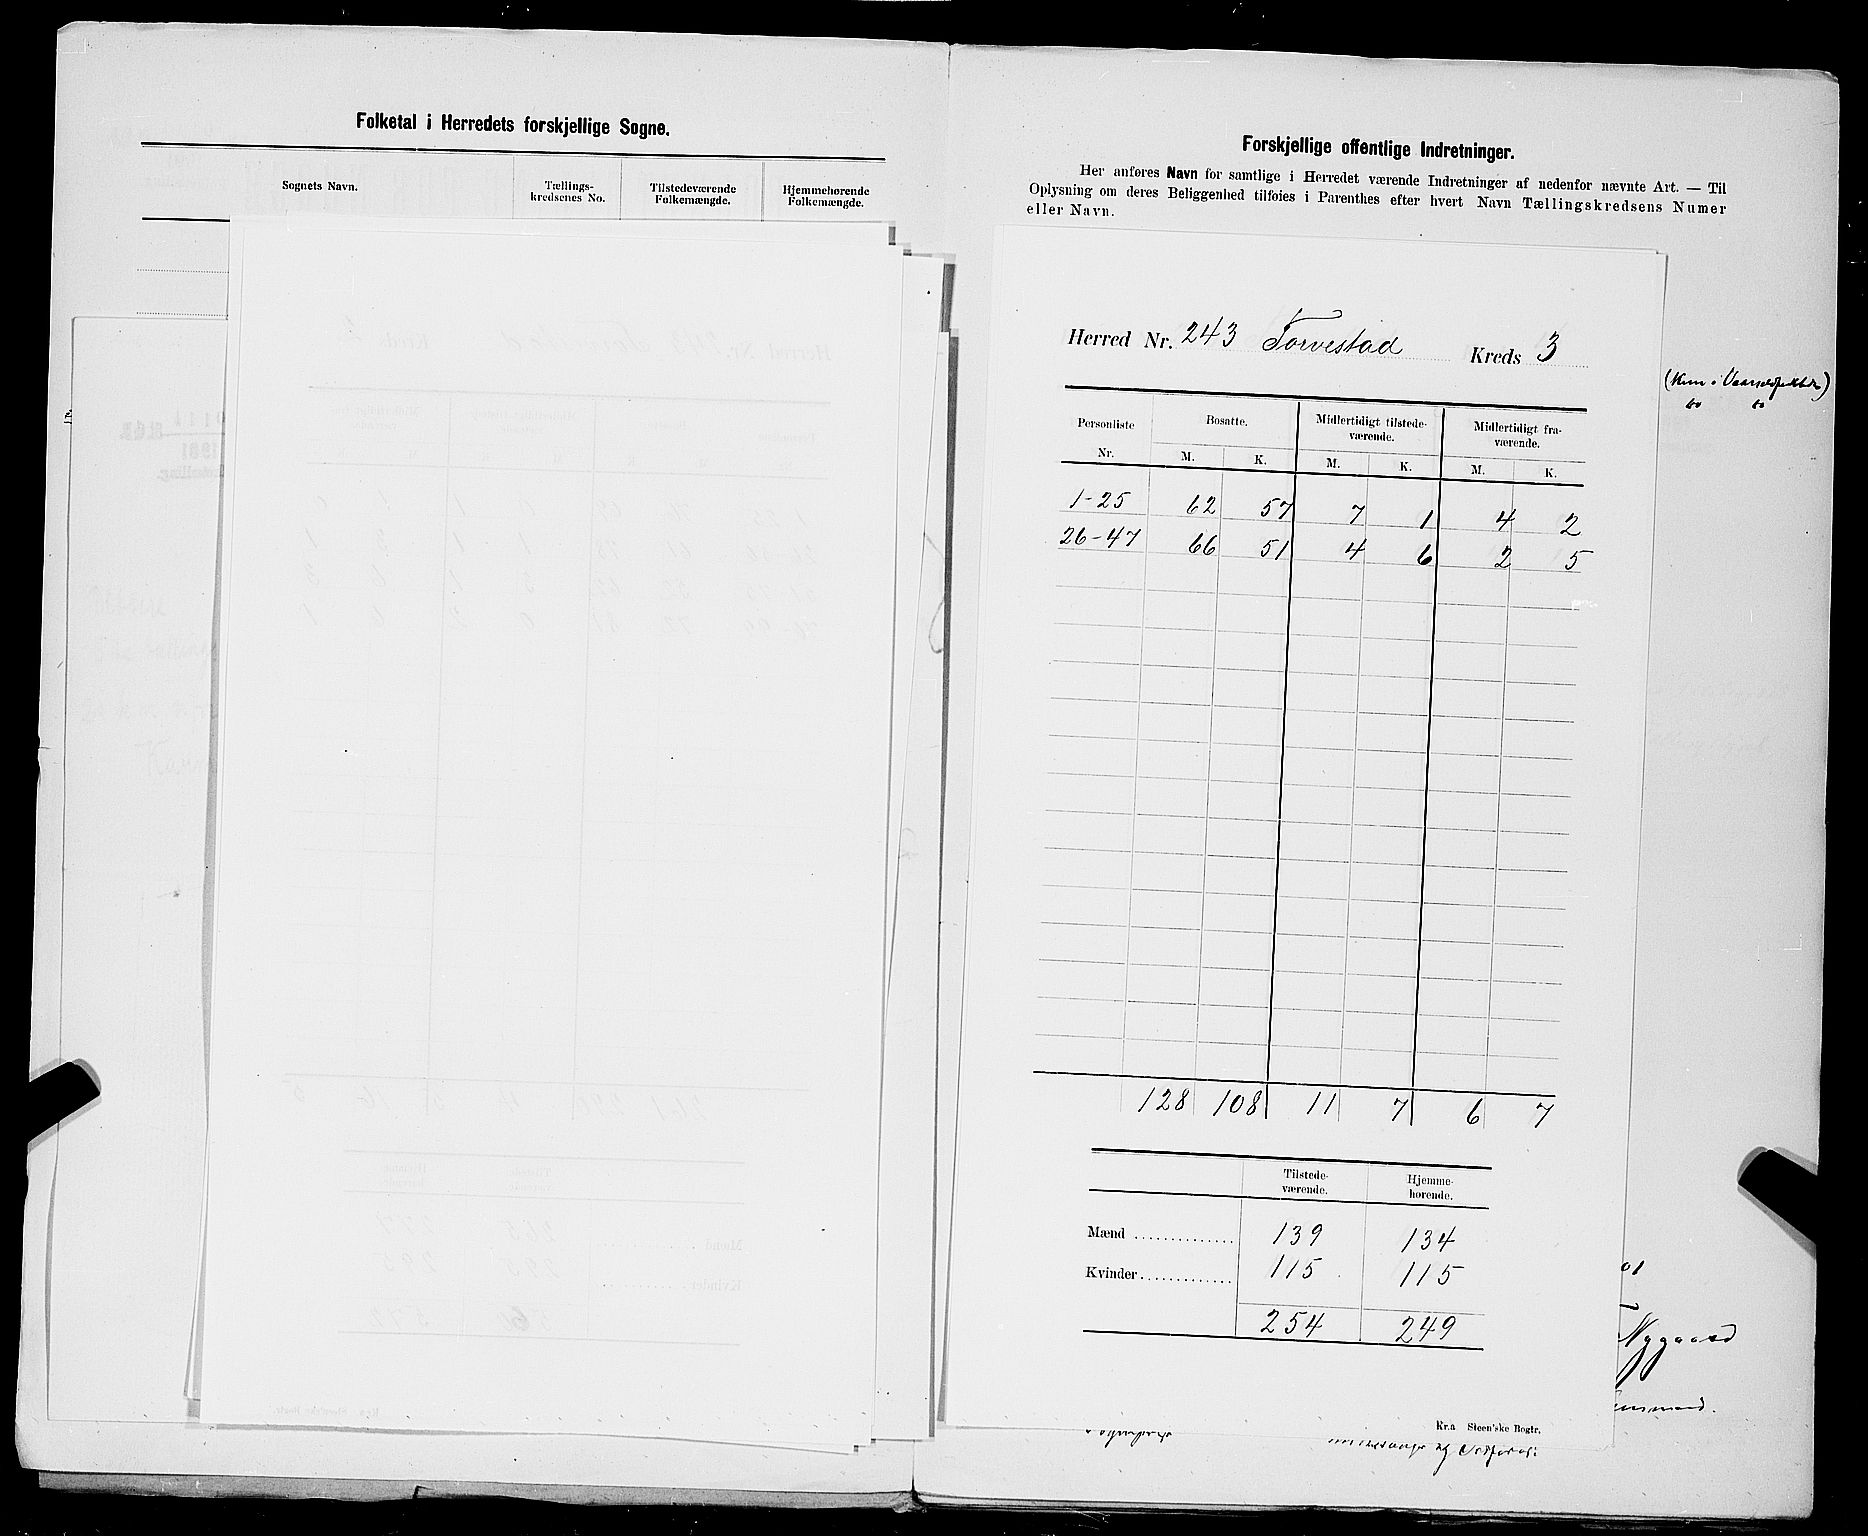 Folketal i Herredets forskjellige Sogne.
Sognets Navn. Tællings-kredsenes No. Tilstedeværende Folkemængde. Hjemmehørende Folkemængde.
Forskjellige offentlige Indretninger.
Her anføres Navn for samtlige i Herredet værende Indretninger af nedenfor nævnte Art. — Til
Oplysning om deres Beliggenhed tilføies i Parenthes efter hvert Navn Tællingskredsens Numer
eller Navn.
Herred Nr. 243 Torvestad Kreds 3
Personliste Nr. Bosatte. Midlertidigt tilstede-værende. Midlertidigt fra-værende.
M. K. M. K. M. K.
1-25 62 57 7 1 4 2
26-47 66 51 4 6 2 5
128 108 11 7 6 7
Tilstede-værende. Hjemme-hørende.
Mænd .............. 139 134
Kvinder............. 115 115
254 249
Kr.a Steen'ske Bogtr.
Nygaard